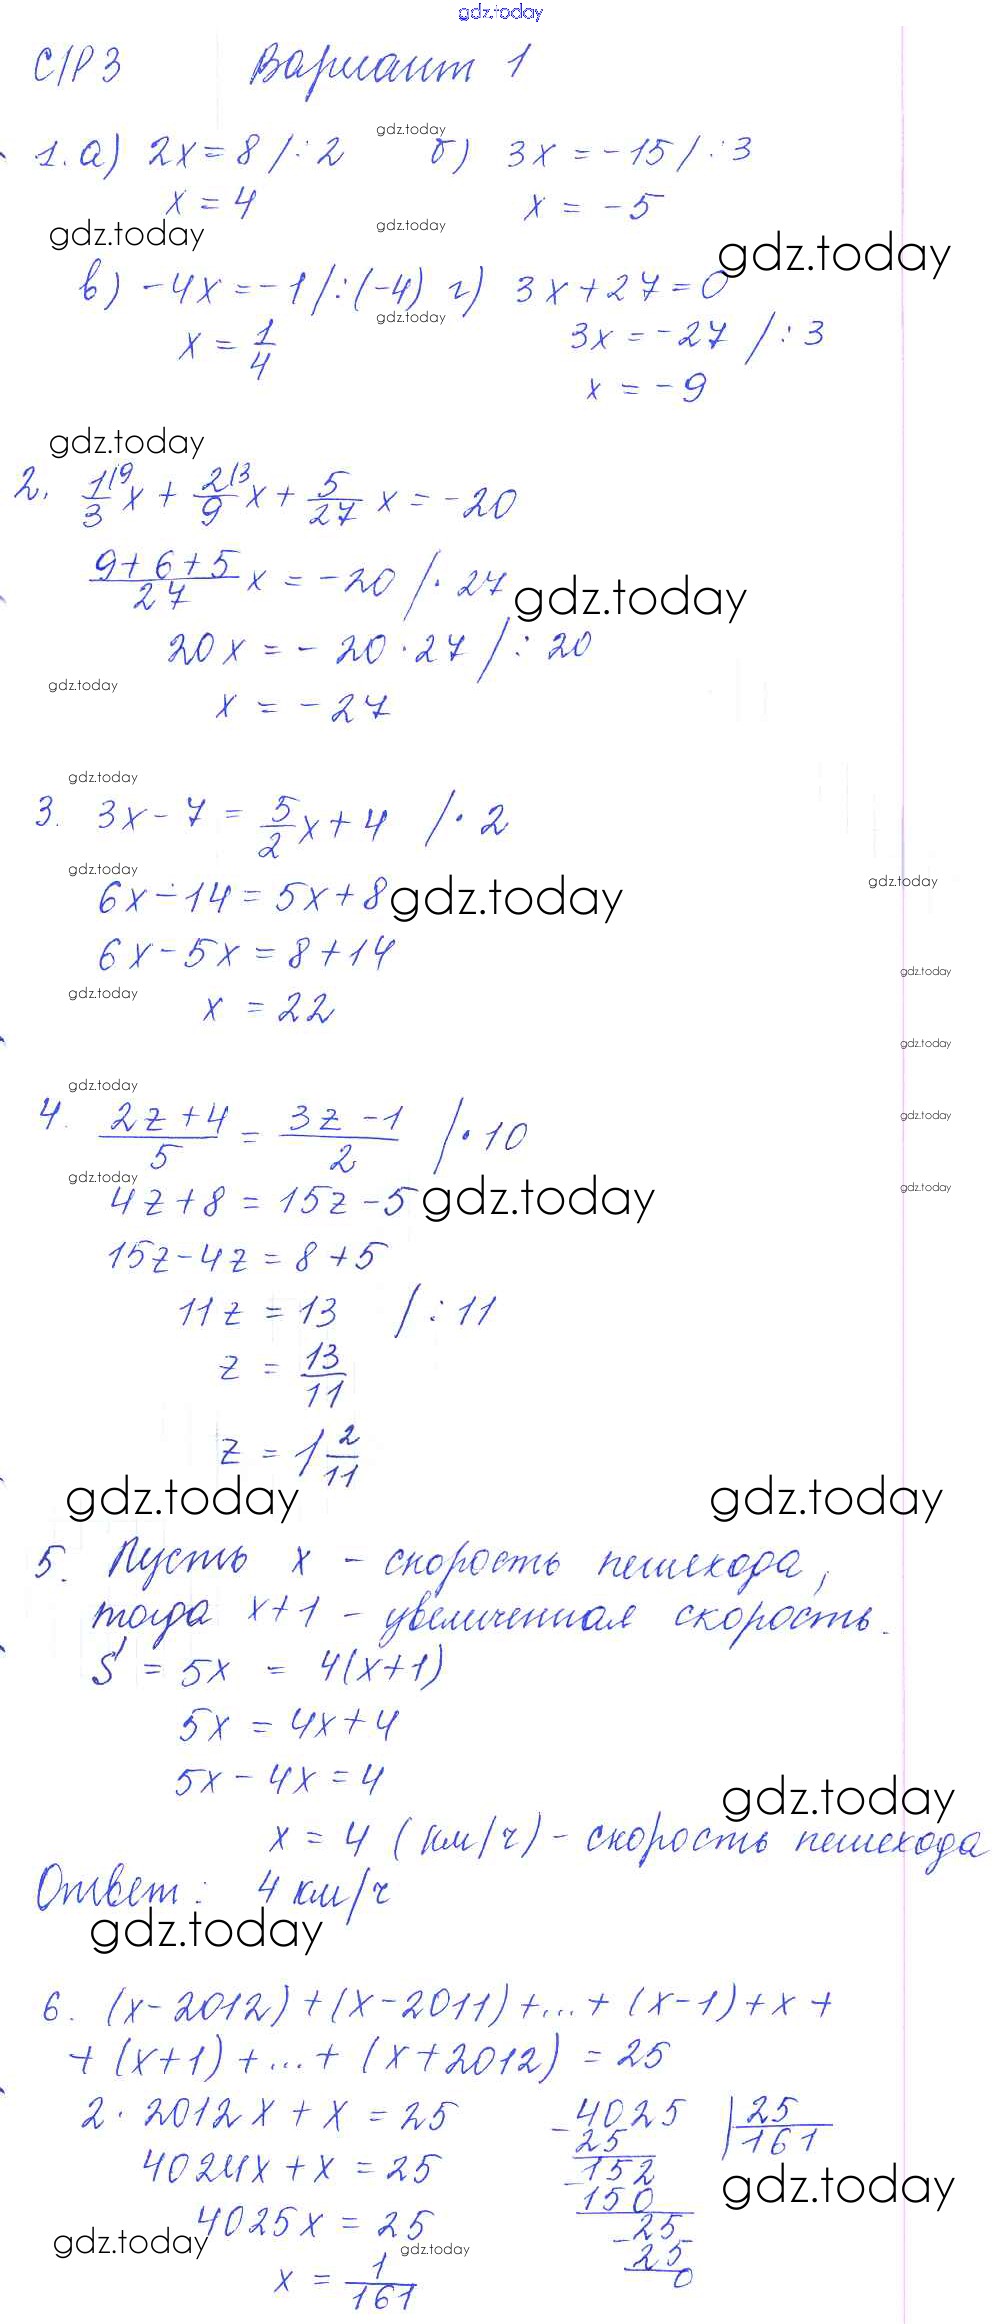 gdz.today
С/Р 3 Вариант 1
gdz.today
1. а) 2x = 8 /:2 б) 3x = -15 /:3
x = 4 x = -5
gdz.today gdz.today gdz.today
в) -4x = -1 /:(-4) г) 3x + 27 = 0
gdz.today
x = 1/4 3x = -27 /:3
x = -9
gdz.today
2. 1/3 |9 x + 2/9 |3 x + 5/27 x = -20
(9+6+5)/27 x = -20 /· 27
gdz.today
20x = -20·27 /: 20
gdz.today
x = -27
gdz.today
3. 3x - 7 = 5/2 x + 4 /· 2
gdz.today gdz.today
6x - 14 = 5x + 8 gdz.today
6x - 5x = 8 + 14
gdz.today
gdz.today
x = 22
gdz.today
gdz.today
4. (2z+4)/5 = (3z-1)/2 /· 10
gdz.today
gdz.today gdz.today
4z + 8 = 15z - 5 gdz.today
15z - 4z = 8 + 5
11z = 13 /: 11
z = 13/11
z = 1 2/11
gdz.today gdz.today
5. Пусть x - скорость пешехода,
тогда x+1 - увеличенная скорость.
S = 5x = 4(x+1)
5x = 4x + 4
5x - 4x = 4
gdz.today
x = 4 (км/ч) - скорость пешехода
Ответ: 4 км/ч
gdz.today
6. (x-2012)+(x-2011)+...+(x-1)+x+
+(x+1)+...+(x+2012) = 25
2·2012x + x = 25 -4025 |25
25 161
4024x + x = 25 -152
gdz.today
150
4025x = 25 -25
gdz.today gdz.today
25
x = 1/161 0